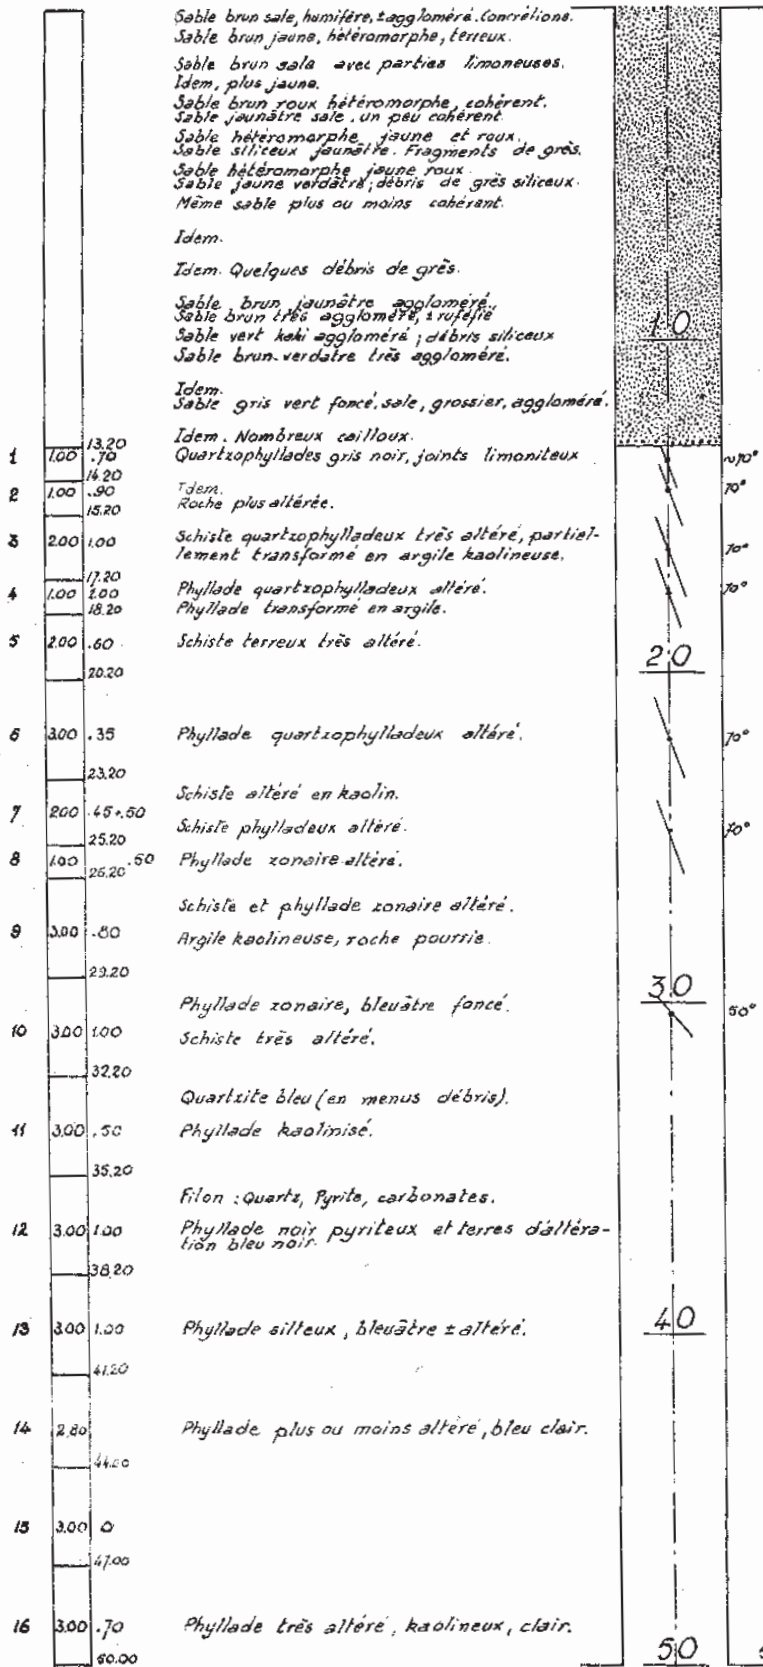 Sable brun sale, humifère, ± aggloméré. Concrétions.
Sable brun jaune, hétéromorphe, terreux.
Sable brun sale avec parties limoneuses.
Idem, plus jaune.
Sable brun roux hétéromorphe, cohérent.
Sable jaunâtre sale, un peu cohérent.
Sable hétéromorphe jaune et roux.
Sable siliceux jaunâtre. Fragments de grès.
Sable hétéromorphe jaune roux.
Sable jaune verdâtre; débris de grès siliceux.
Même sable plus ou moins cohérent.
Idem.
Idem. Quelques débris de grès.
Sable brun jaunâtre aggloméré.
Sable brun très aggloméré, ± ruféfié
10
Sable vert kaki aggloméré; débris siliceux
Sable brun-verdatre très aggloméré.
Idem.
Sable gris vert foncé, sale, grossier, aggloméré.
13.20 Idem. Nombreux cailloux.
1 1.00 .70 Quartzophyllades gris noir, joints limoniteux ~70°
14.20
2 1.00 .90 Idem. 70°
Roche plus altérée.
15.20
3 2.00 1.00 Schiste quartzophylladeux très altéré, partiel-
lement transformé en argile kaolineuse. 70°
17.20
4 1.00 1.00 Phyllade quartzophylladeux altéré. 70°
18.20 Phyllade transformé en argile.
5 2.00 .60 Schiste terreux très altéré.
20
20.20
6 3.00 .35 Phyllade quartzophylladeux altéré. 70°
23.20
Schiste altéré en kaolin.
7 2.00 .45+.50 Schiste phylladeux altéré. 70°
25.20
8 1.00 .50 Phyllade zonaire altéré.
26.20
Schiste et phyllade zonaire altéré.
9 3.00 .80 Argile kaolineuse, roche pourrie.
29.20
30
Phyllade zonaire, bleuâtre foncé. 50°
10 3.00 1.00 Schiste très altéré.
32.20
Quartzite bleu (en menus débris).
11 3.00 .50 Phyllade kaolinisé.
35.20
Filon : Quartz, Pyrite, carbonates.
12 3.00 1.00 Phyllade noir pyriteux et terres d'altéra-
tion bleu noir.
38.20
13 3.00 1.00 Phyllade silteux, bleuâtre ± altéré. 40
41.20
14 2.80 Phyllade plus ou moins altéré, bleu clair.
44.00
15 3.00 0
47.00
16 3.00 .70 Phyllade très altéré, kaolineux, clair.
50.00 50